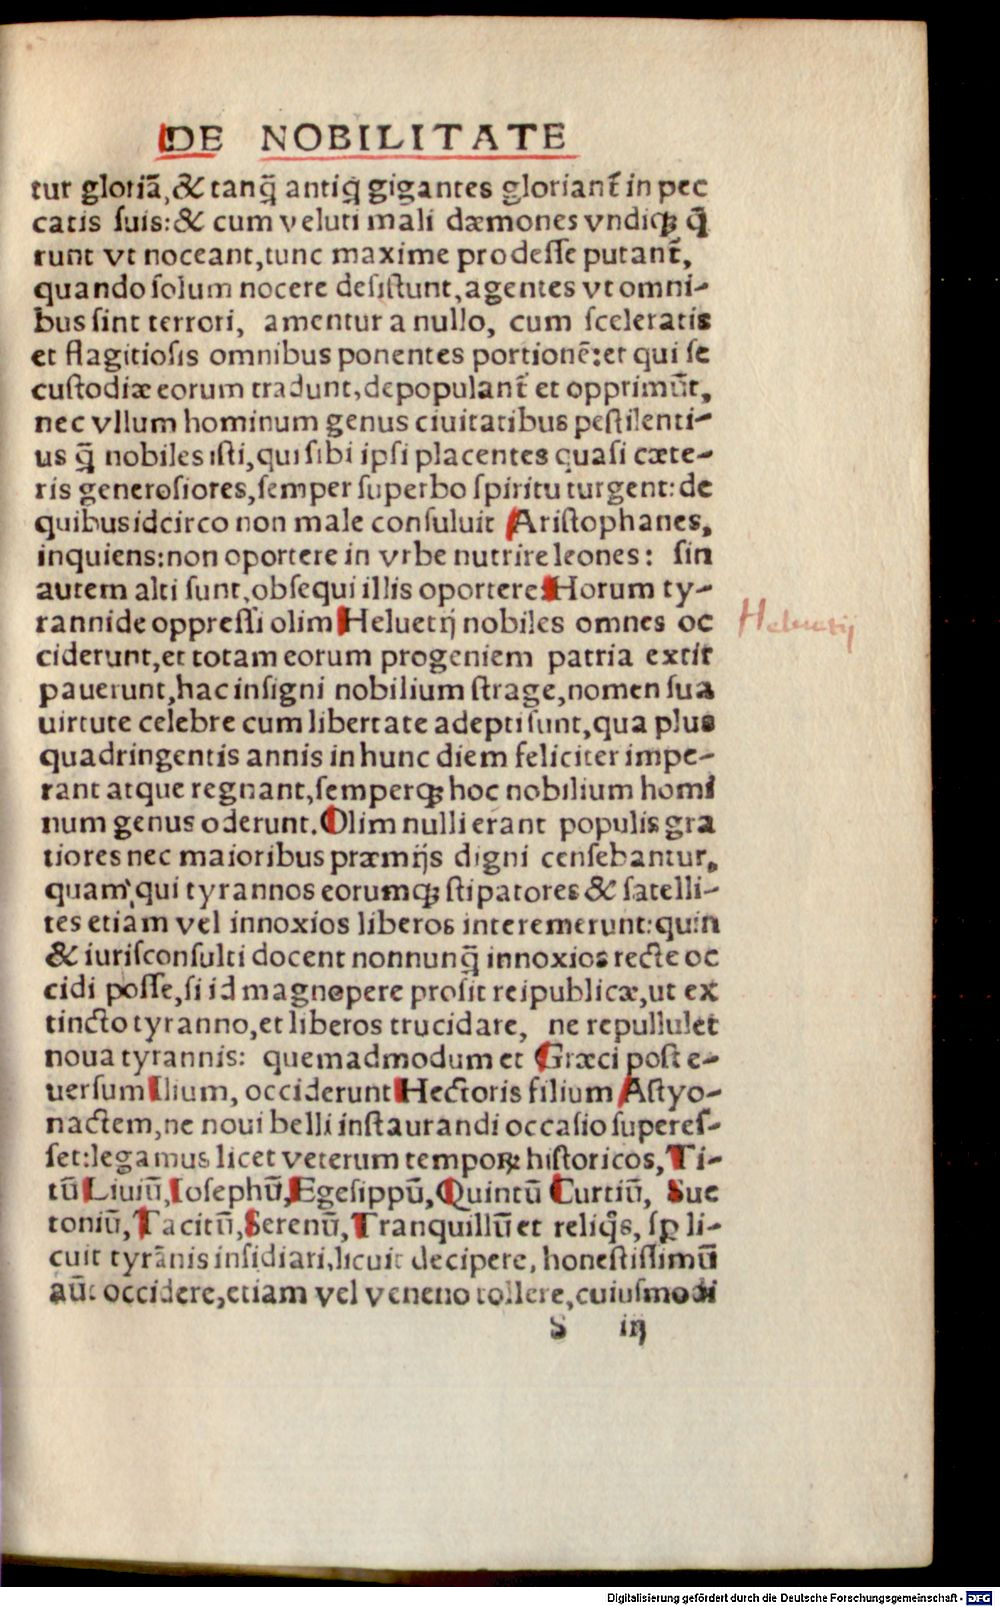 DE NOBILITATE
tur gloriā, & tanq̃ antiq̃ gigantes gloriant̃ in pec
catis ſuis: & cum veluti mali dæmones vndiqꝫ q̃
runt vt noceant, tunc maxime prodeſſe putant̃,
quando ſolum nocere deſiſtunt, agentes vt omni-
bus ſint terrori, amentur a nullo, cum ſceleratis
et flagitioſis omnibus ponentes portionē: et qui ſe
cuſtodiæ eorum tradunt, depopulant̃ et opprimūt,
nec vllum hominum genus ciuitatibus peſtilenti-
us q̃ nobiles iſti, qui ſibi ipſi placentes quaſi cæte-
ris generoſiores, ſemper ſuperbo ſpiritu turgent: de
quibus idcirco non male conſuluit Ariſtophanes,
inquiens: non oportere in vrbe nutrire leones: ſin
autem alti ſunt, obſequi illis oportere. Horum ty-
rannide oppreſſi olim Heluetij nobiles omnes oc
ciderunt, et totam eorum progeniem patria extir
pauerunt, hac inſigni nobilium ſtrage, nomen ſua
uirtute celebre cum libertate adepti ſunt, qua plus
quadringentis annis in hunc diem feliciter impe-
rant atque regnant, ſemperqꝫ hoc nobilium homi
num genus oderunt. Olim nulli erant populis gra
tiores nec maioribus præmijs digni cenſebantur,
quam qui tyrannos eorumqꝫ ſtipatores & ſatelli-
tes etiam vel innoxios liberos interemerunt: quin
& iuriſconſulti docent nonnunq̃ innoxios recte oc
cidi poſſe, ſi id magnopere proſit reipublicæ, ut ex
tincto tyranno, et liberos trucidare, ne repullulet
noua tyrannis: quemadmodum et Græci poſt e-
uerſum Ilium, occiderunt Hectoris filium Aſtyo-
nactem, ne noui belli inſtaurandi occaſio ſupereſ-
ſet: legamus licet veterum temporꝝ hiſtoricos, Ti-
tū Liuiū, Ioſephū, Egeſippū, Quintū Curtiū, Sue
toniū, Tacitū, Serenū, Tranquillū et reliq̃s, ſꝑ li-
cuit tyrānis inſidiari, licuit decipere, honeſtiſſimū
aūt occidere, etiam vel veneno tollere, cuiuſmodi
S iij
Heluetij
Digitalisierung gefördert durch die Deutsche Forschungsgemeinschaft - DFG